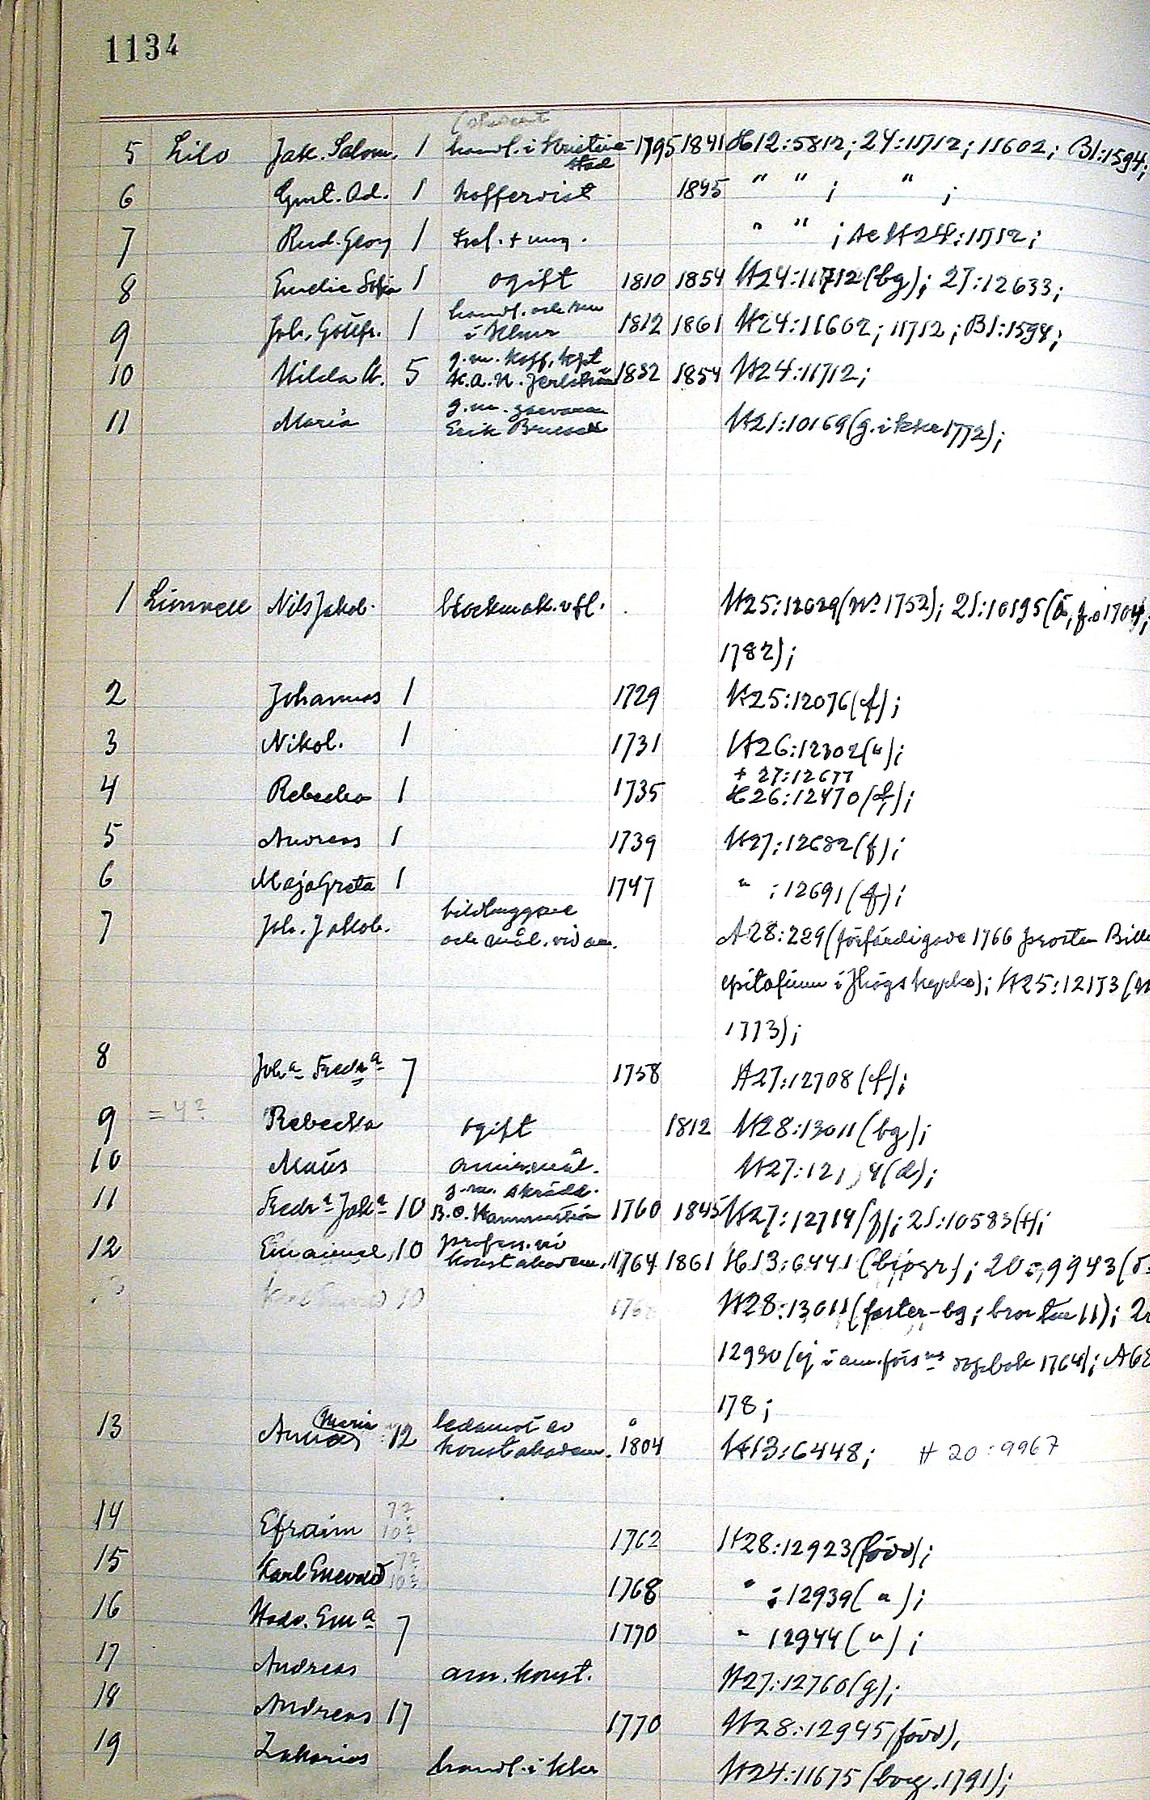 1134
5 Lilo Jak. Salom. 1 handl. i Kristinestad 1795 1841 H12:5812; 24:11712; 11602; B1:1594;
6 Gust. Ad. 1 koffervist 1845 " " ; " ;
7 Rud. Georg 1 " " ; se H24:11712;
8 Emelie Sofia 1 ogift 1810 1854 H24:11712(bg); 27:12633;
9 Joh. Gottfr. 1 handl. och 1812 1861 H24:11602; 11712; B1:1594;
i Klmr
10 Hilda W. 5 g.m. koff. kpt 1832 1854 H24:11712;
K.A.N. Jerlström
11 Maria g.m. H21:10169(g. i kka 1772);
Erik
1 Linnvell Nils Jakob. blockmak. v fl. H25:12029(nr 1752); 21:10195(
1782);
2 Johannes 1 1729 H25:12076(f);
3 Nikol. 1 1731 H26:12302(");
+ 27:12677
4 Rebecka 1 1735 H26:12470(f);
5 Andreas 1 1739 H27:12682(f);
6 Maja Greta 1 1747 " :12691(f);
7 Joh. Jakob. bildhuggare A28:229(förfärdigade 1766 prosten Bill
och mål. vid am.
epitafium i Högs kyrka); H25:12173(
1773);
8 Joha Freda 7 1758 H27:12708(f);
9 =4? Rebecka ogift 1812 H28:13011(bg);
10 Måns amir.mål. H27:121 4(d);
11 Freda Joha 10 g.m. skrädd. 1760 1845 H27:12714(f); 21:10583(+);
B.O.
12 Emanuel 10 profess. vid 1764 1861 H13:6441(biogr); 20:9943(
konstakadem.
10 176 H28:13011(faster-bg; bror till 11);
12930(ej i am.förs:ns dopbok 1764); A68
178;
13 Anna Maria 12 ledamot av 1804 H13:6448; H 20:9967
konstakadem.
14 Efraim 7? 10? 1762 H28:12923(född);
15 Karl Enevald 7? 10? 1768 " :12939( " );
16 Hedv. Ema 7 1770 " 12944( " );
17 Andreas am. konst. H27:12760(g);
18 Andreas 17 1770 H28:12945(född),
19 Zakarias handl. i Klm H24:11675(borg. 1791);